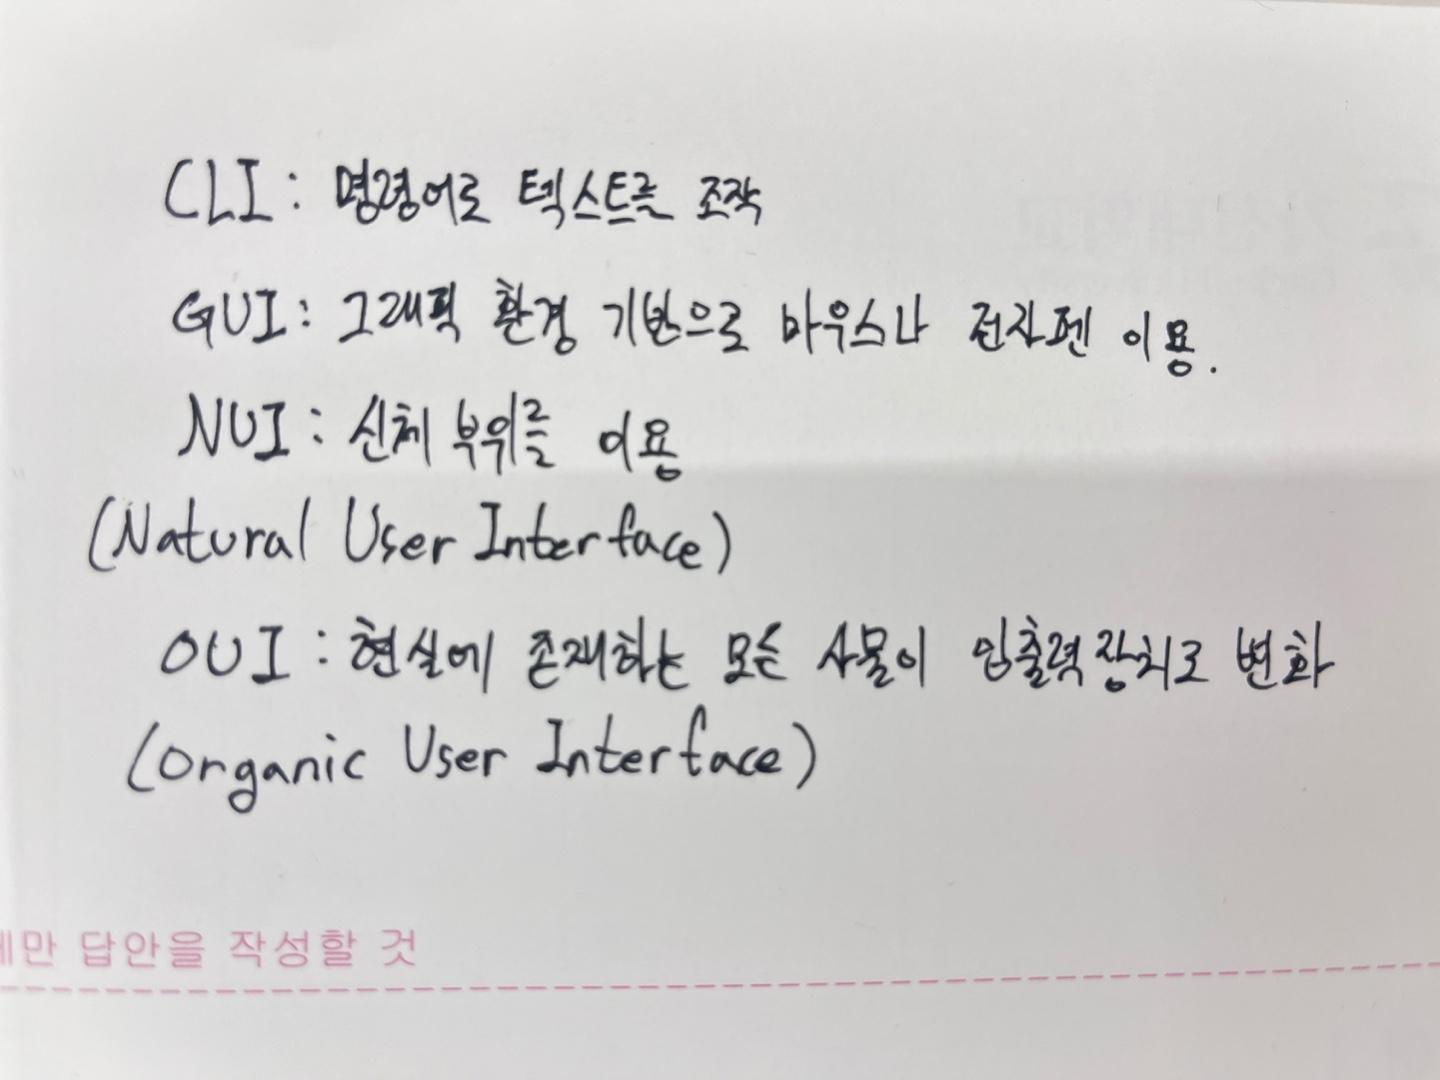 CLI : 명령어로 텍스트를 조작
GUI : 그래픽 환경 기반으로 마우스나 전자펜 이용.
NUI : 신체 부위를 이용
(Natural User Interface)
OUI : 현실에 존재하는 모든 사물이 입출력 장치로 변화
(Organic User Interface)
에만 답안을 작성할 것